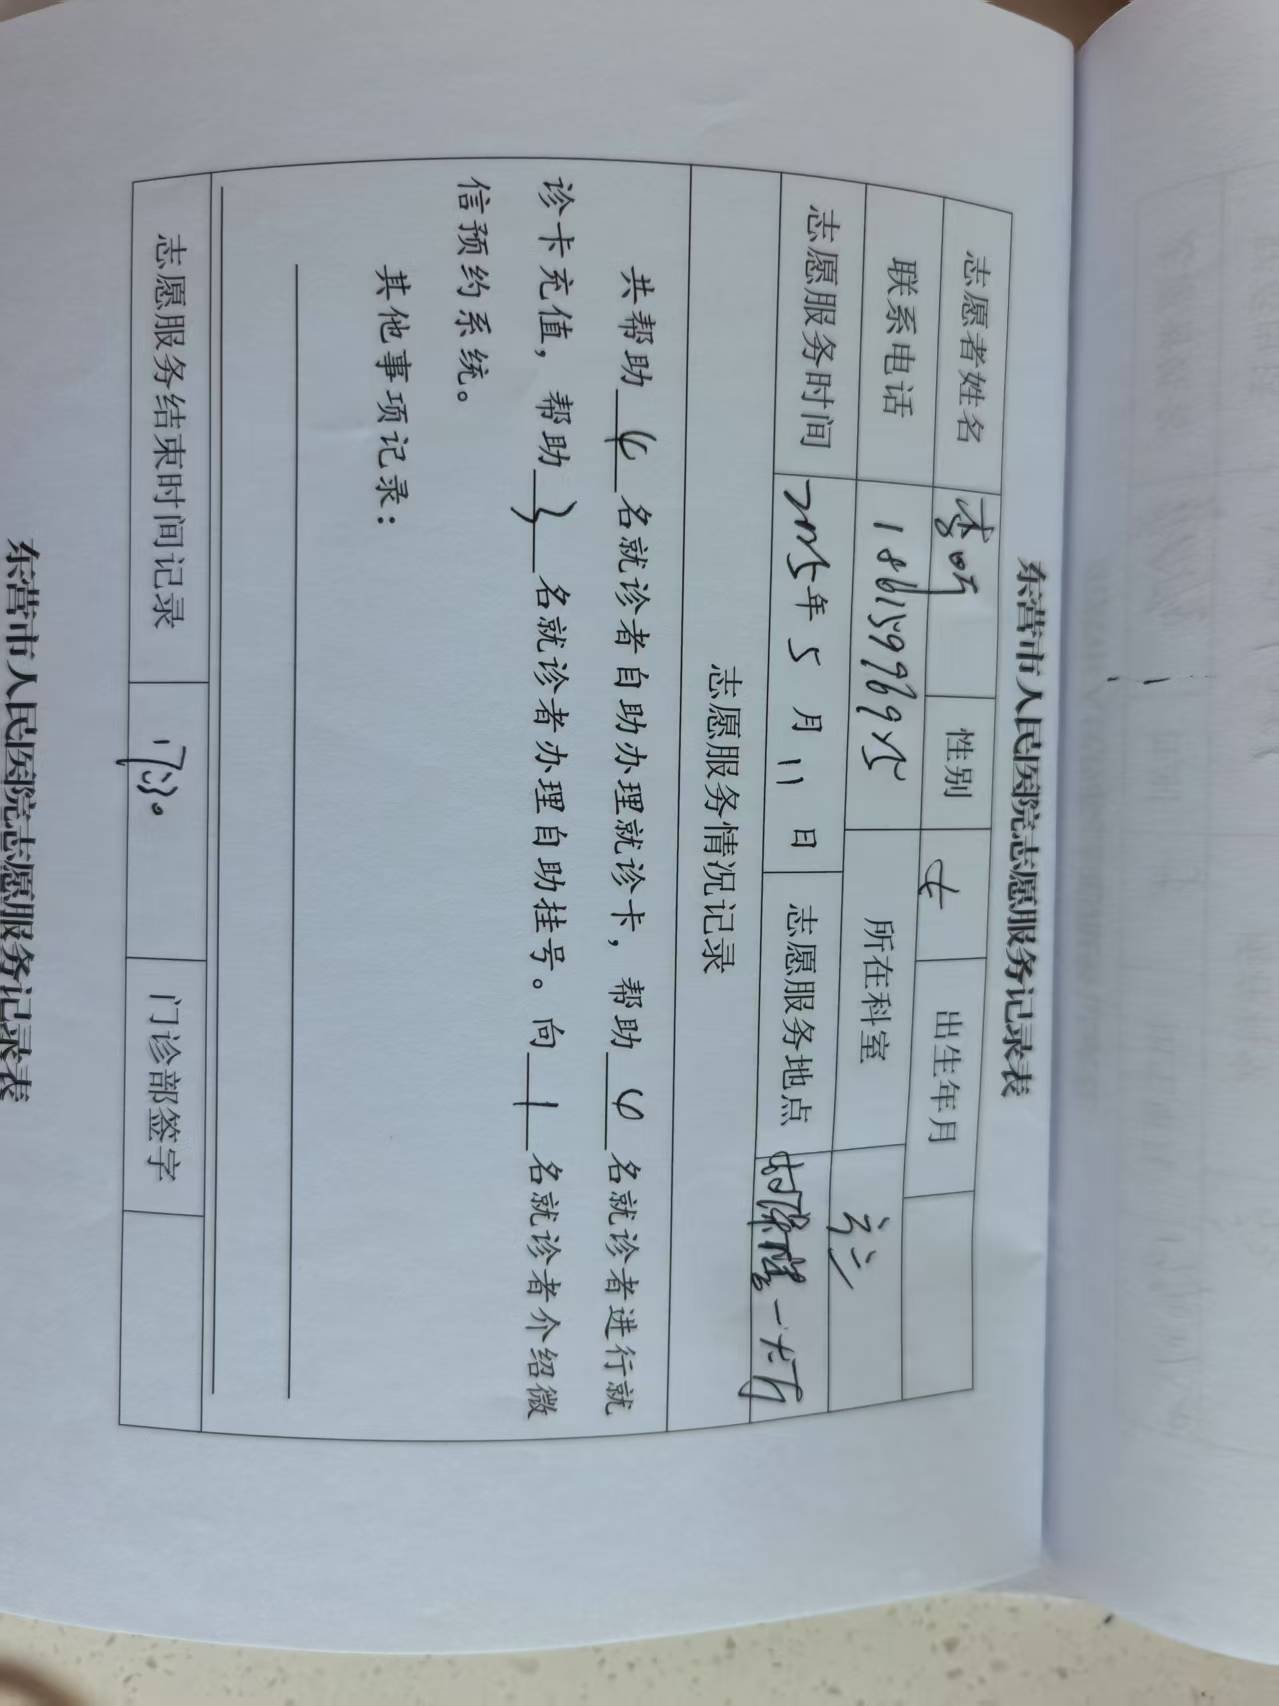 东营市人民医院志愿服务记录表
志愿者姓名 李 性别 女 出生年月
联系电话 所在科室
志愿服务时间 2025年 5 月 11 日 志愿服务地点
志愿服务情况记录
共帮助 4 名就诊者自助办理就诊卡，帮助 4 名就诊者进行就
诊卡充值，帮助 3 名就诊者办理自助挂号。向 1 名就诊者介绍微
信预约系统。
其他事项记录：
志愿服务结束时间记录 17:30 门诊部签字
东营市人民医院志愿服务记录表